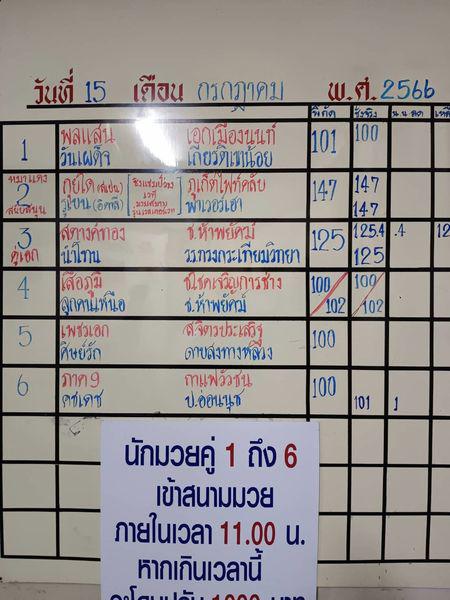 วันที่ 15 เดือน กรกฎาคม พ.ศ. 2566
พิกัด ชั่งจริง น.น.ลด
1 พลแสน เอกเมืองนนท์ 101 100
วันเผด็จ เกียรติเขาน้อย
2 กุยโด (สเปน) ชิงแชมป์ของ ภูเก็ตไฟท์คลับ 147 147
เวที
147
3 สตางค์ทอง ช.ห้าพยัคฆ์ 125 125.4 .4 12
คู่เอก นำโทน วรรทวงกระเทียมวิทยา 125
4 เสือภูมิ ช.โชคเจริญการช่าง 100 100
ลูกคนเหนือ ช.ห้าพยัคฆ์ 102 102
5 เพชรเอก ส.จิตรประเสริฐ 100
ศิษย์รัก ดาบสงทางหลวง
6 ภาค 9 กาแฟวัวชน 100
คชเดช ป.อ่อนนุช 101 1
นักมวยคู่ 1 ถึง 6
เข้าสนามมวย
ภายในเวลา 11.00 น.
หากเกินเวลานี้